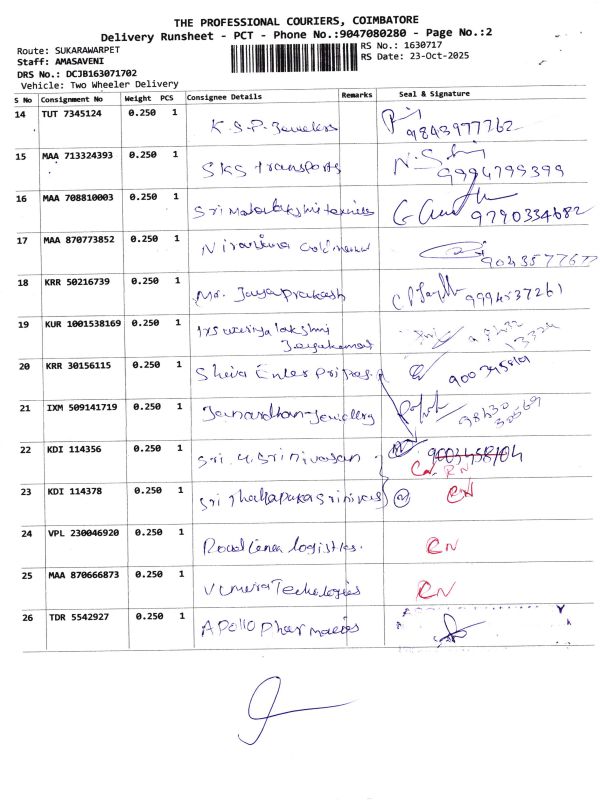 THE PROFESSIONAL COURIERS, COIMBATORE
Delivery Runsheet - PCT - Phone No.:9047080280 - Page No.:2
Route: SUKARAWARPET
RS No.: 1630717
Staff: AMASAVENI
RS Date: 23-Oct-2025
DRS No.: DCJB163071702
Vehicle: Two Wheeler Delivery
S No Consignment No Weight PCS Consignee Details Remarks Seal & Signature
14 TUT 7345124 0.250 1 K.S.P. Jewelers 9843977762
15 MAA 713324393 0.250 1 SKS transports 9994799399
16 MAA 708810003 0.250 1 Sri 9790334682
17 MAA 870773852 0.250 1
18 KRR 50216739 0.250 1 Mr. Jayaprakash 9994537261
19 KUR 1001538169 0.250 1
20 KRR 30156115 0.250 1 Shiva Enter
21 IXM 509141719 0.250 1 Janardhan Jewellery 98430 30569
22 KDI 114356 0.250 1 Sri. U. Srinivasan CN RN
23 KDI 114378 0.250 1 Sri CN
24 VPL 230046920 0.250 1 logistics. CN
25 MAA 870666873 0.250 1 CN
26 TDR 5542927 0.250 1 Apollo pharmacies